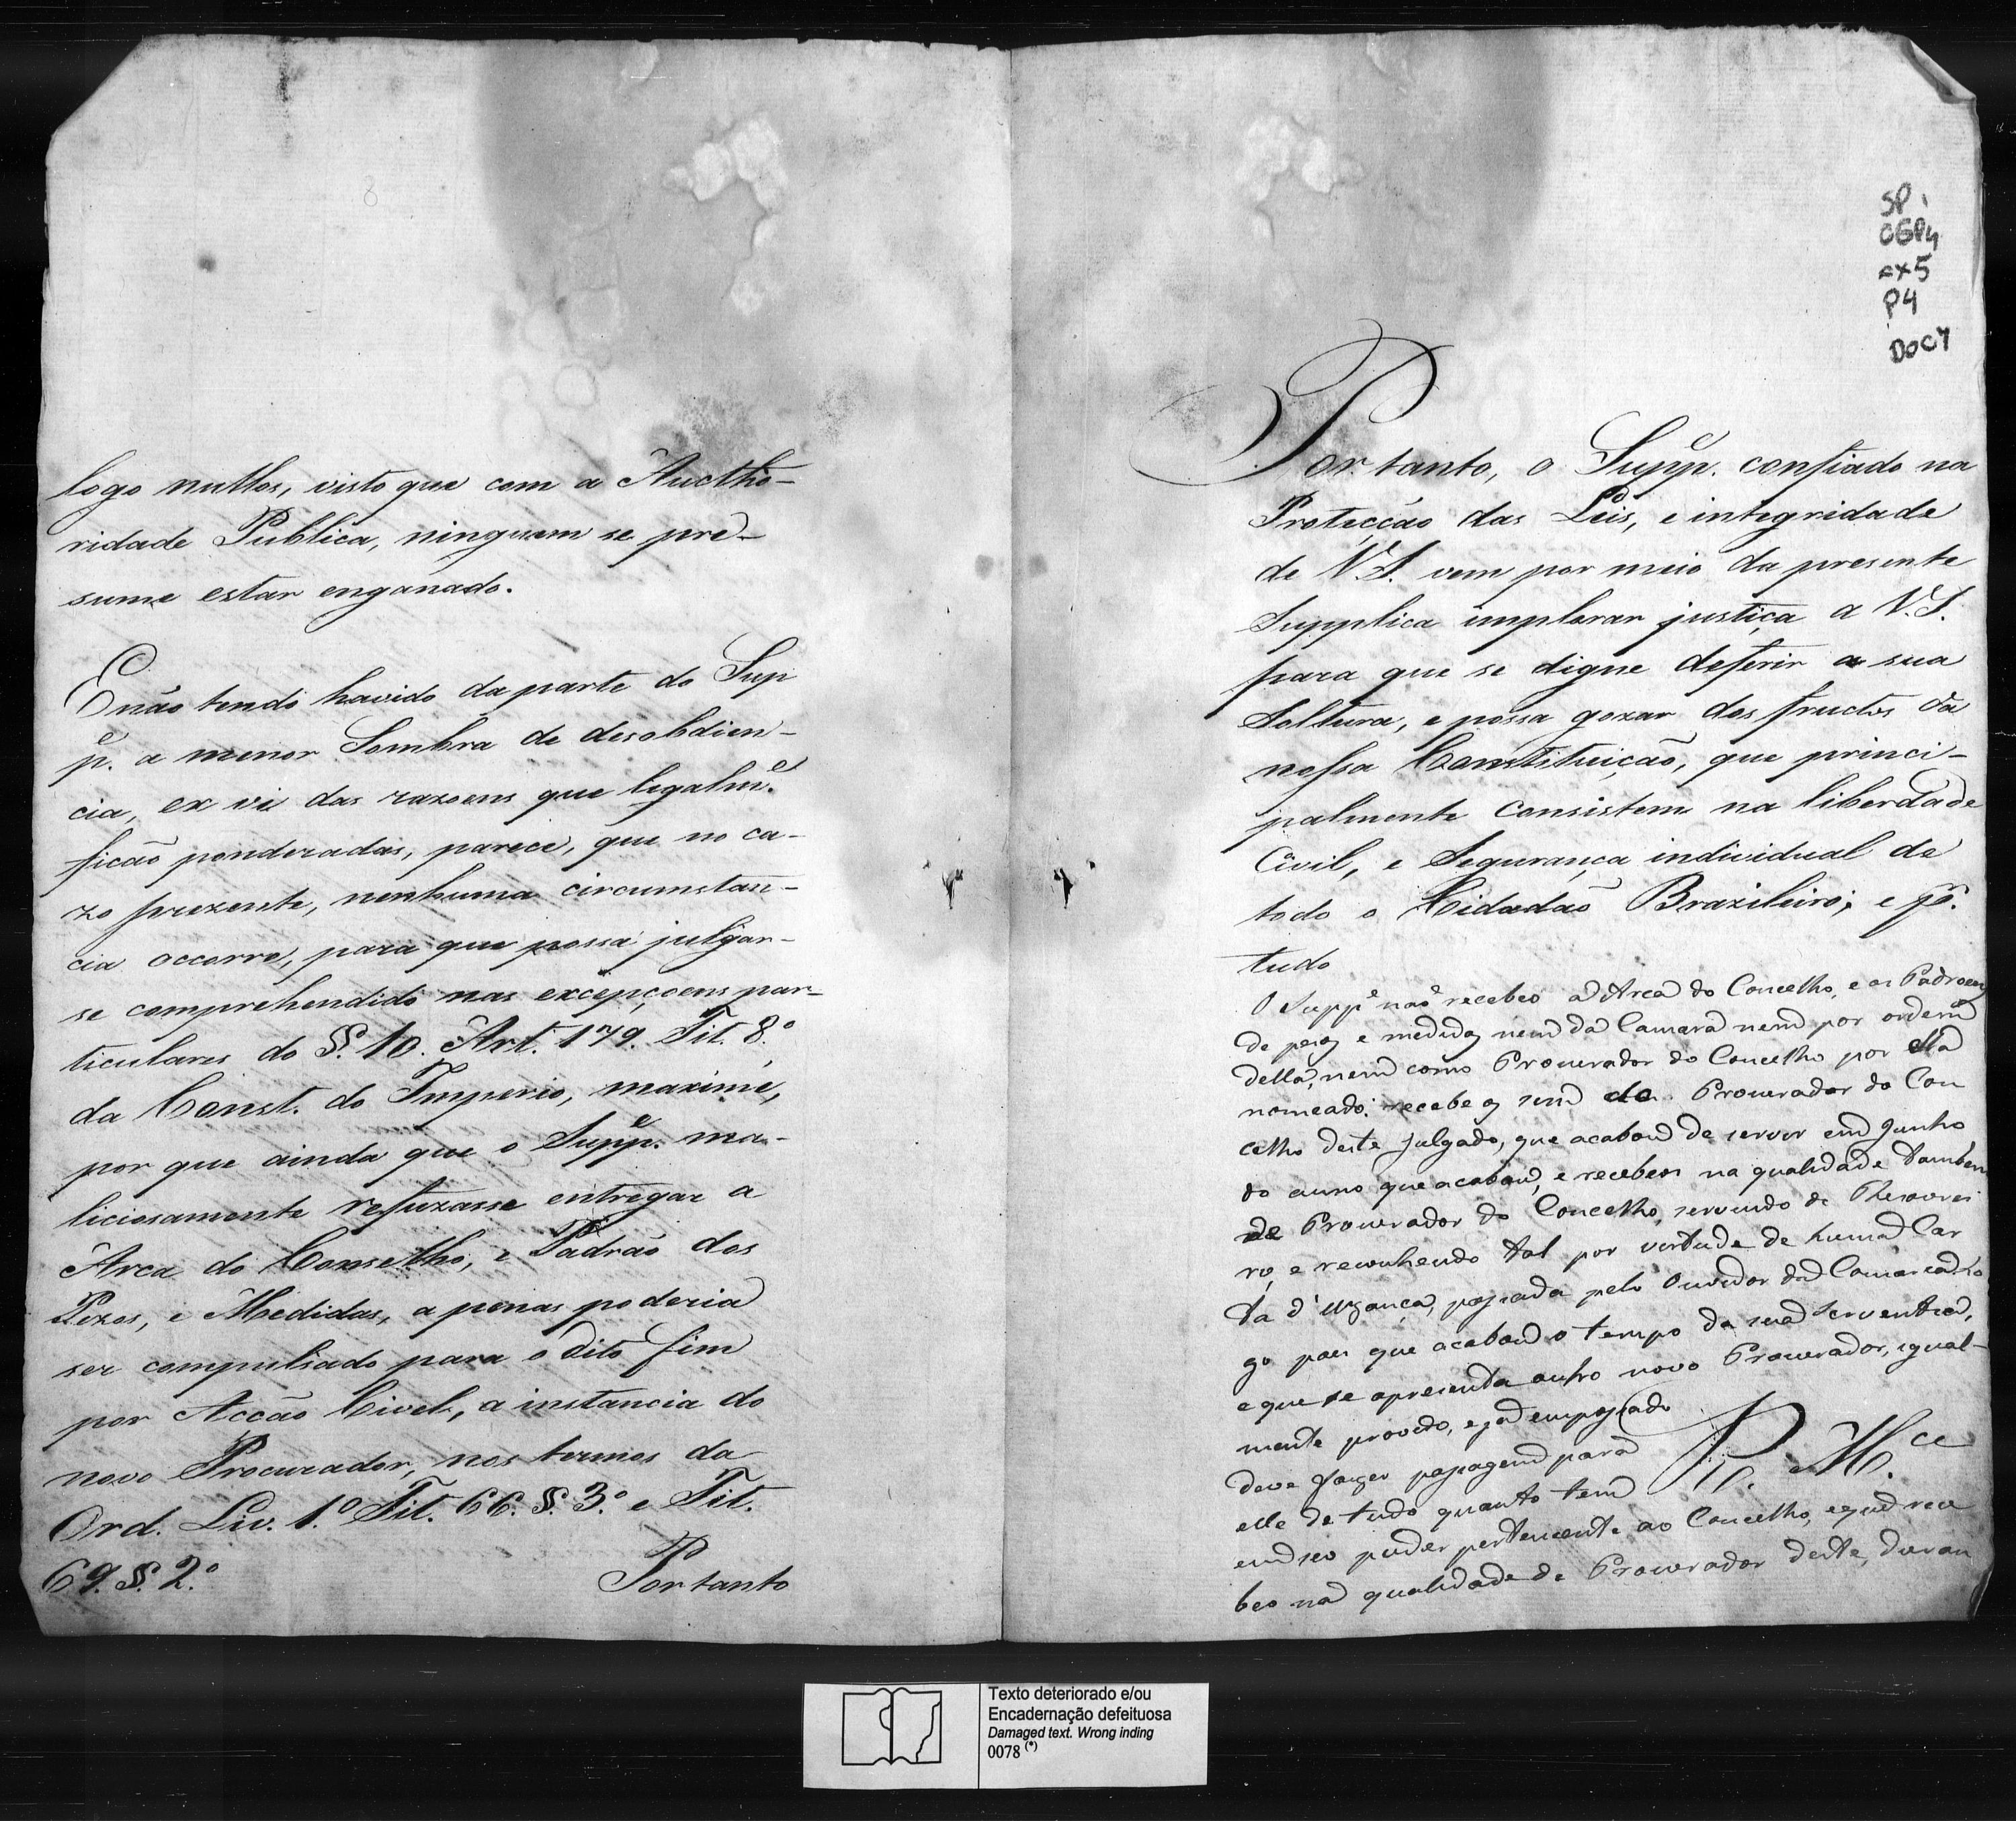 logo nullos, visto que com a Auctho-
ridade Publica, ninguem se pre-
sume estar enganado.
E não tendo havido da parte do Sup
p.e a menor Sombra de desobdien-
cia, ex vi das razoens que legalm.e
ficão ponderadas, parece, que no ca-
zo prezente, nenhuma circumstan-
cia occorre, para que possa julgar-
se comprehendido nas excepçoens par-
ticulares do §. 10. Art. 179. Tit. 8.º
da Const. do Imperio, maxime,
por que ainda que o Supp.e ma-
liciosamente refuzasse entregar a
Arca do Conselho, e Padrão dos
Pezos, e Medidas, apenas poderia
ser compulsado para o dito fim
por Acção Civel, a instancia do
novo Procurador, nos termos da
Ord. Liv. 1.º Tit. 66. §. 3.º e Tit.
69. §. 2.º
Portanto
SP
CGP4
cx5
P4
DOC7
Portanto, o Supp.e confiado na
Protecção das Leis, e integridade
de V.S. vem por meio da presente
Supplica implorar justiça a V.S.
para que se digne deferir a sua
Soltura, e possa gozar dos fructos da
nossa Constituição, que princi-
palmente consistem na liberdade
Civil, e Segurança individual de
todo o Cidadão Brazileiro; e p.r
tudo
O Supp.e não recebeo a Arca do Concelho, e os Padroens
de pesos e medidas nem da Camara nem por ordem
della, nem como Procurador do Concelho por ella
nomeado: recebeos sim de Procurador do Con
celho deste Julgado, que acabou de servir em Junho
do anno que acabou, e recebeos na qualidade tambem
de Procurador do Concelho, servindo de Thesourei
ro, e reconhecido tal por virtude de huma Car
ta d'uzança, passada pelo Ouvidor da Comarca. Lo
go pois que acabou o tempo da sua serventia,
e que se apresenta outro novo Procurador, igual-
mente provido, e ja empossado
deve fazer passagem para
elle de tudo quanto tem
em seo puder pertencente ao Concelho, e que rece
beo na qualidade de Procurador deste, duran
R. M.ce
Texto deteriorado e/ou
Encadernação defeituosa
Damaged text. Wrong inding
0078 (*)